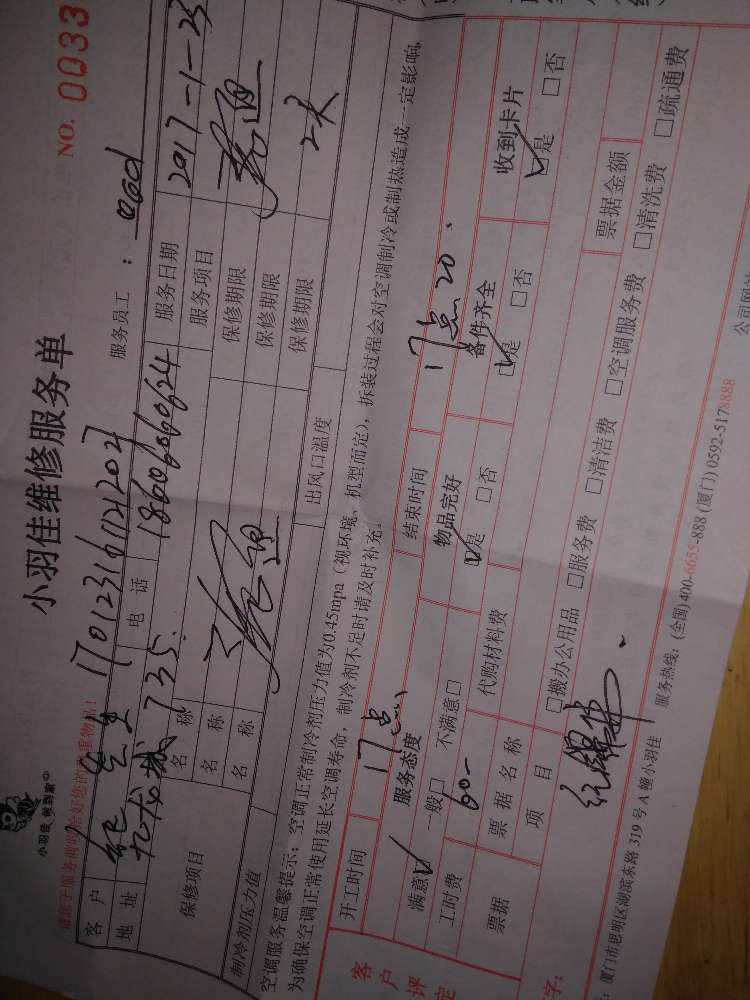 小羽佳维修服务单
NO. 0033
小羽佳 倾到家
服务员工：
客户 纪先生 1701231611212027
地址 九龙城735.
电话 18606060624
服务日期 2017-1-23
保修项目
名称
名称
名称
服务项目
保修期限
保修期限
保修期限 2天
制冷剂压力值
出风口温度
空调服务温馨提示：空调正常制冷剂压力值为0.45mpa（视环境、机型而定），拆装过程会对空调制冷或制热造成一定影响，
为确保空调正常使用延长空调寿命，制冷剂不足时请及时补充。
开工时间 17点
结束时间 17点20
客户评定
服务态度
物品完好
备件齐全
收到卡片
满意□ 一般□ 不满意□
□是 □否
□是 □否
□是 □否
工时费 60-
代购材料费
票据
票据名称
票据金额
项目
□搬办公用品 □服务费 □清洁费 □空调服务费 □清洗费 □疏通费
字：
厦门市思明区湖滨东路319号A幢小羽佳
服务热线：(全国)400-6655-888 (厦门) 0592-5178888
公司网站